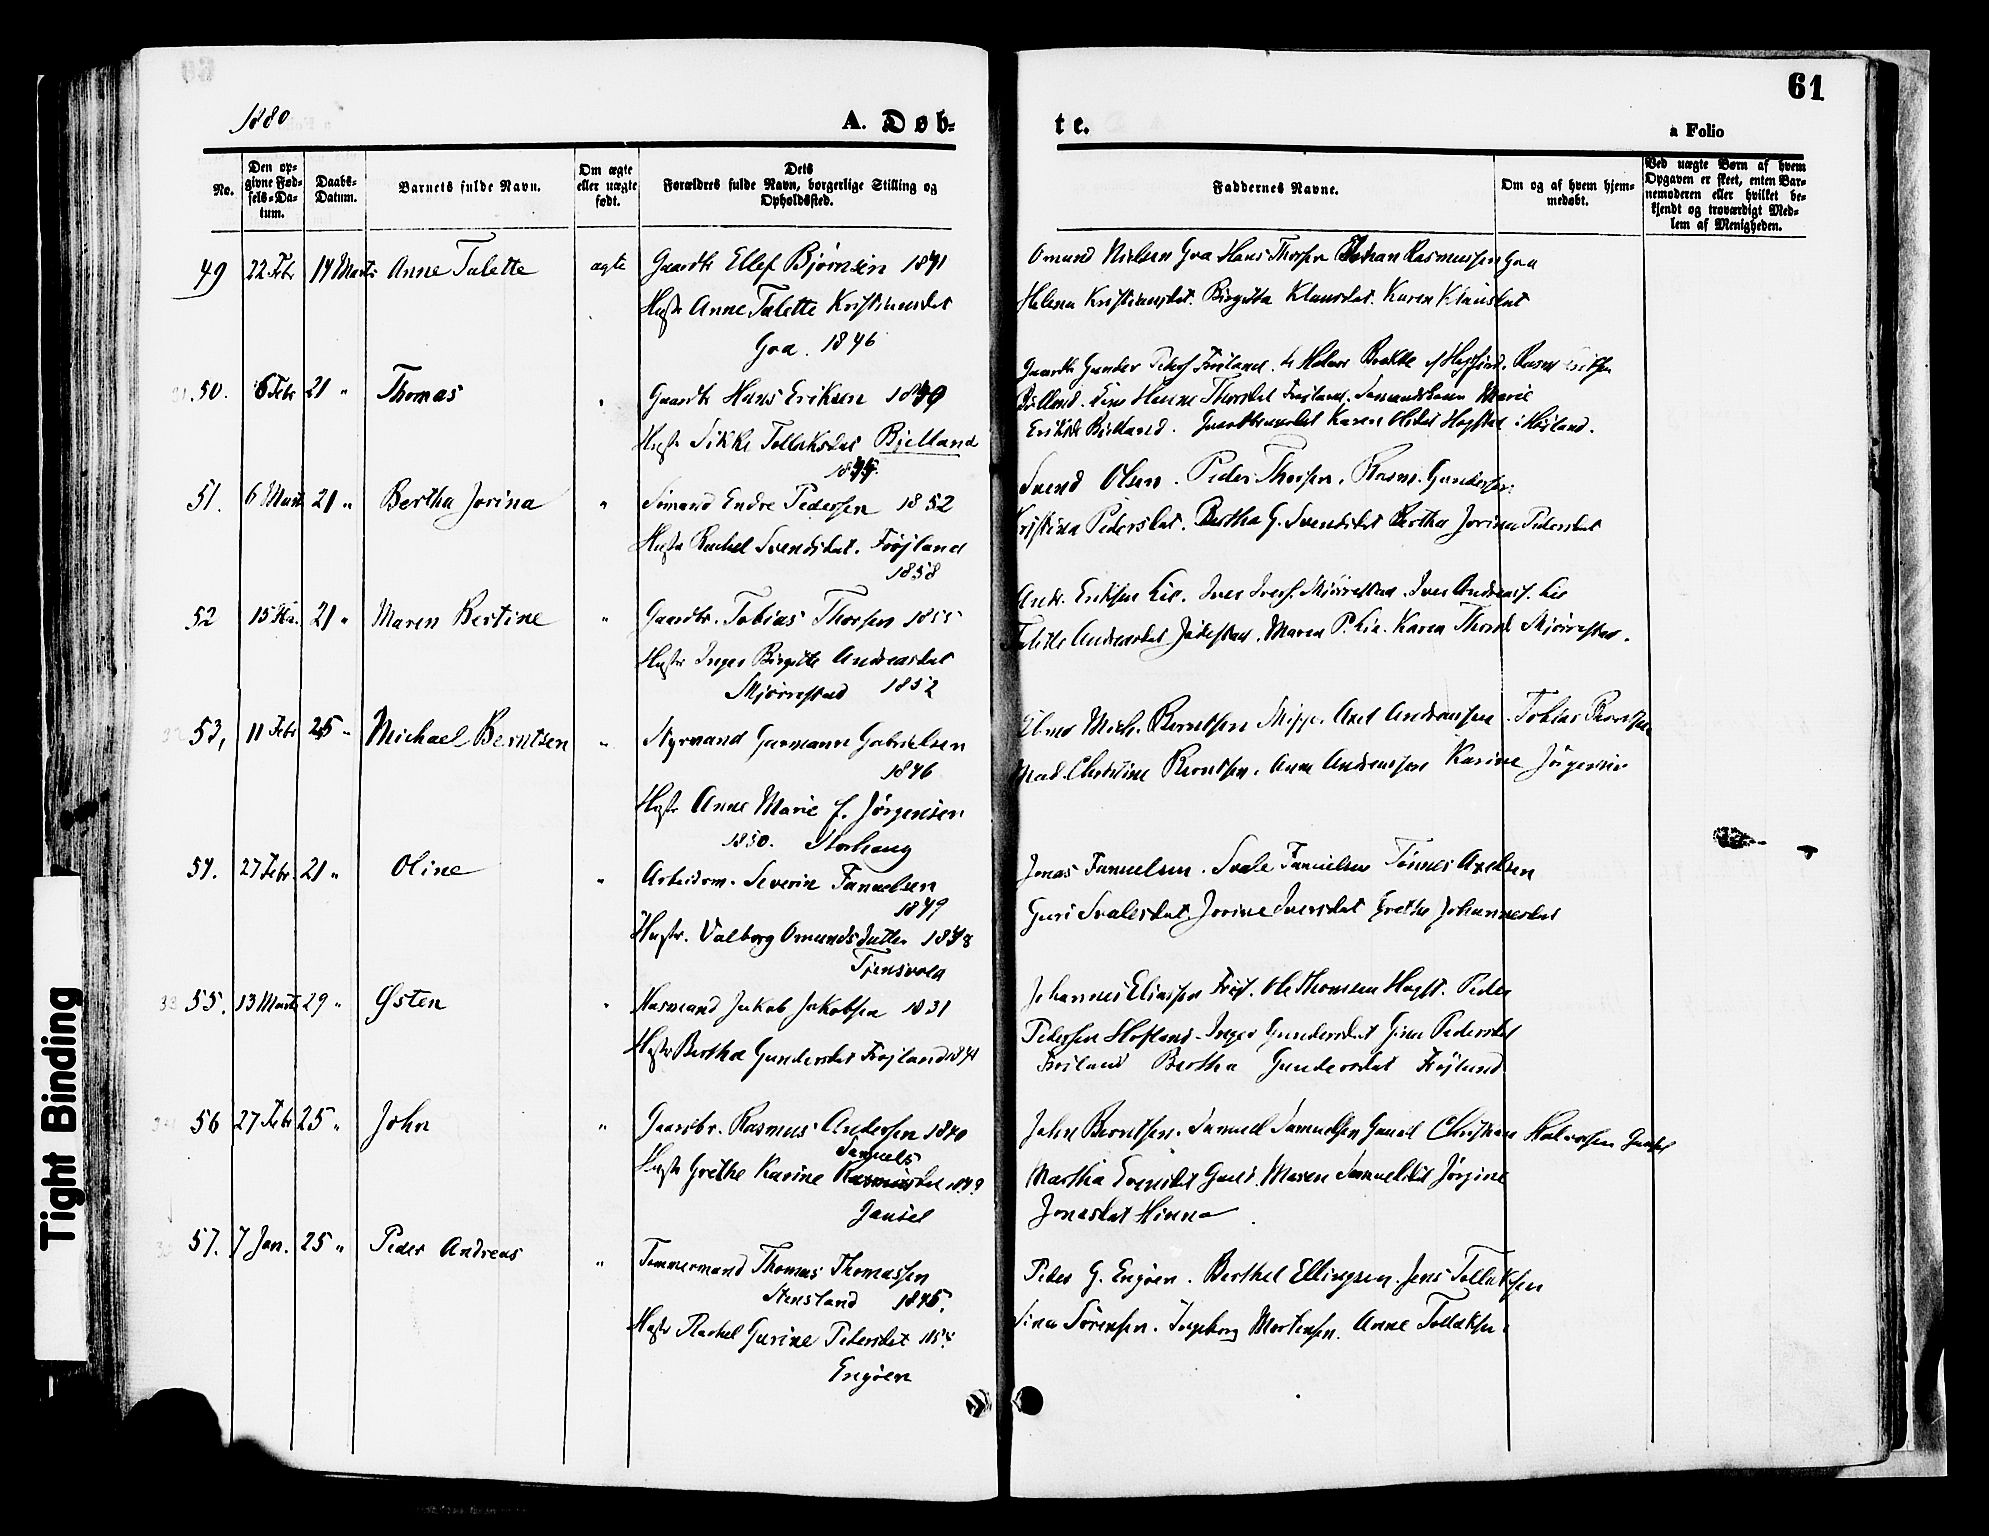 61
1880
A. Døb-
te.
a Folio
No.
Den op-
givne Fød-
sels-Da-
tum.
Daabs-
Datum.
Barnets fulde Navn.
Om ægte
eller uægte
født.
Dets
Forældres fulde Navn, borgerlige Stilling og
Opholdssted.
Faddernes Navne.
Om og af hvem hjem-
medøbt.
Ved uægte Børn af hvem
Opgaven er skeet, enten Bar-
nemoderen eller hvilket be-
kjendt og troværdigt Med-
lem af Menigheden.
49 22 Febr 14 Marts Anne Talette ægte Gaardbr Ellef Bjørnsen 1841
Hustr Anne Talette Kristiansdat
Goa. 1846
Omund Nielsen Goa Hans Thorsen Johan Rasmussen Goa
Helena Kristiansdat. Birgitta Klausdat. Karen Klausdat
50. 6 Febr 21 " Thomas " Gaardbr Hans Eriksen 1849
Hustr Sikke Tollaksdat Bjelland
Gaardbr Gunder Peders Frøiland. Halvor
Bjelland. Hanne Thorsdat Frøiland. Marie
Eriksd Bjelland. Karen Olsdat i Høiland.
51. 6 Marts 21 " Bertha Jorina " Sømand Endre Pedersen 1852
Hustr Rachel Svendsdat. Frøjland
1858
Svend Olsen. Peder Thorsen. Rasm. Gundersen
Kristina Pedersdat. Bertha G. Svendsdat Bertha Jorina Pedersdat
52 15 21 " Maren Bertine " Gaardbr. Tobias Thorsen 1855
Hustr Inger Birgitte Andreasdat
Skjørrestad 1852
Andr. Eriksen Lie. Iver Ivers. Skjørrestad. Iver Andreass. Lie
Talette Andreasdat Jaadestad. Maren P. Lie. Karen Thorsd Skjørrestad.
53, 11 Febr 25 " Michael Berntsen " Styrmand Garmann Gabrielsen
1846
Hustr Anne Marie f. Jørgensen
1850. Storhaug
Mich. Berntsen Axel Andreassen Tobias Thorsen
Mad. Christine Berntsen. Anne Andreassen Karine Jørgensen
54. 27 Febr. 21 " Oline " Arbeidsm. Severin Fanuelsen
1849
Hustr. Valborg Omundsdatter 1848
Tjensvold
Jonas Fanuelsen. Svale Fanuelsen Tønnes Axelsen
Guri Svalesdat Jorine Iversdat Grethe Johannesdat
55. 13 Marts 29 " Østen " Husmand Jakob Jakobsen 1831
Hustr Bertha Gundersdat Frøjland 1841
Johannes Eliassen Frøj. Ole Thomsen Peder
Pedersen Hofland. Inger Gundersdat Gina Pedersdat
Frøiland Bertha Gundersdat Frøjland
56 27 Febr 25 " John " Gaardbr. Rasmus Andersen 1840
Samuels
Hustr Grethe Karine Rasmusdat 1849
Gausel
John Berntsen. Samuel Samuelsen Gausel Christian Halvorsen Gausel
Martha Gausel. Maren Samuelsdat Jørgine
Jonasdat Hinna.
57. 7 Jan. 25 " Peder Andreas " Tømmermand Thomas Thomassen
Stensland 1845.
Hustr Rachel Gurine Pedersdat
Engøen
Peder G. Engøen. Berthel Ellingsen. Jens Tollaksen
Sina Sørensen. Ingeborg Mortensen. Anne Tollaksen
Tight Binding